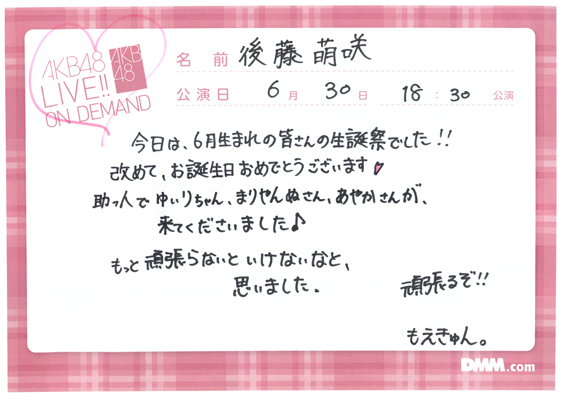 AKB48
LIVE!!
ON DEMAND
AKB
48
名前 後藤萌咲
公演日 6月 30日 18:30 公演
今日は、6月生まれの皆さんの生誕祭でした!!
改めて、お誕生日おめでとうございます♥
助っ人でゆいりちゃん、まりやんぬさん、あやかさんが、
来てくださいました♪
もっと頑張らないといけないなと、
思いました。
頑張るぞ!!
もえきゅん。
DMM.com